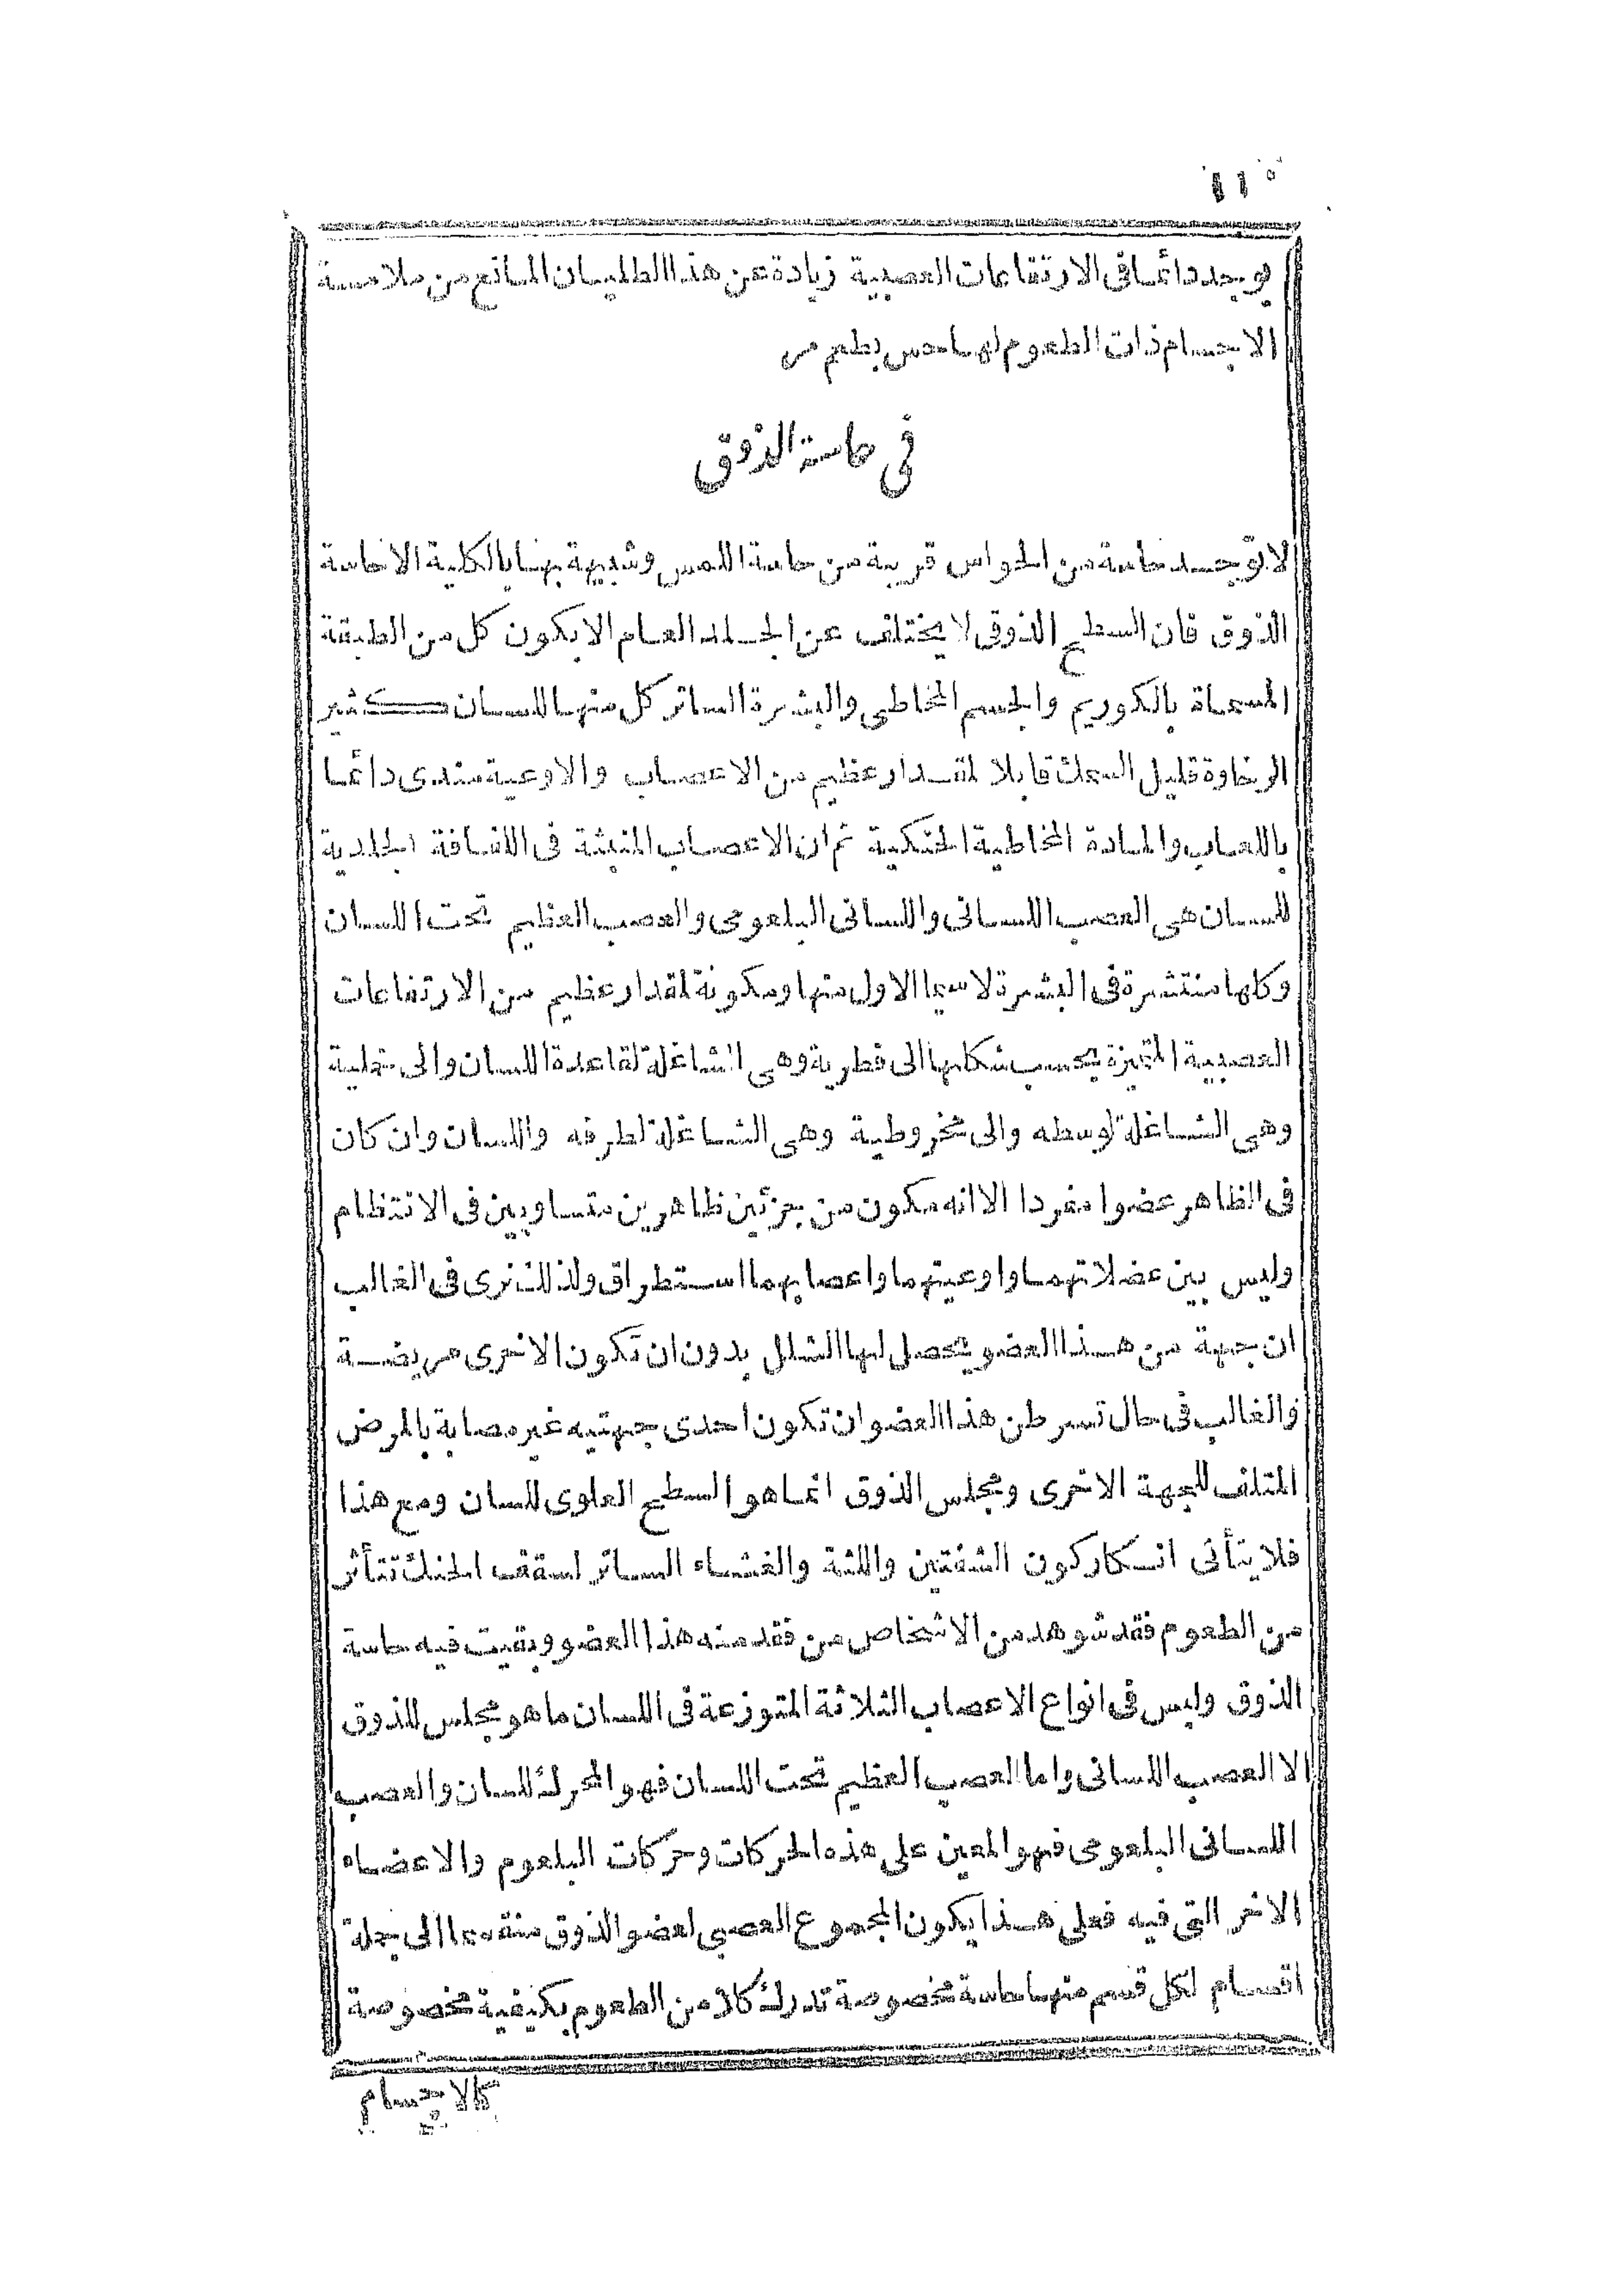 يوجد دائما فى الارتفاعات العصبية زيادة عن هذا الطليان المانع من ملامسة
الاجسام ذات الطعوم لها حس بطعم مر
فى حاسة الذوق
لا توجد حاسة من الحواس قريبة من حاسة اللمس وشبيهة بها بالكلية الا حاسة
الذوق فان السطح الذوقى لا يختلف عن الجلد العام الا بكون كل من الطبقة
المسماة بالكوريم والجسم المخاطى والبشرة الساتر كل منها للسان كثير
الرخاوة قليل السمك قابلا لمقدار عظيم من الاعصاب والاوعية مندى دائما
باللعاب والمادة المخاطية الحنكية ثم ان الاعصاب المنبثة فى اللفافة الجلدية
للسان هى العصب اللسانى واللسانى البلعومى والعصب العظيم تحت اللسان
وكلها منتشرة فى البشرة لا سيما الاول منها ومكونة لمقدار عظيم من الارتفاعات
العصبية المتميزة بحسب شكلها الى فطرية وهى الشاغلة لقاعدة اللسان والى حلمية
وهى الشاغلة لوسطه والى مخروطية وهى الشاغلة لطرفه واللسان وان كان
فى الظاهر عضوا مفردا الا انه مكون من جزئين ظاهرين متساويين فى الانتظام
وليس بين عضلاتهما واوعيتهما واعصابهما استطراق ولذلك نرى فى الغالب
ان جهة من هذا العضو يحصل لها الشلل بدون ان تكون الاخرى مريضة
والغالب فى حال تسرطن هذا العضو ان تكون احدى جهتيه غير مصابة بالمرض
المتلف للجهة الاخرى ومجلس الذوق انما هو السطح العلوى للسان ومع هذا
فلا يتأتى انكار كون الشفتين واللثة والغشاء الساتر لسقف الحنك تتأثر
من الطعوم فقد شوهد من الاشخاص من فقد منه هذا العضو وبقيت فيه حاسة
الذوق وليس فى انواع الاعصاب الثلاثة المتوزعة فى اللسان ما هو مجلس للذوق
الا العصب اللسانى واما العصب العظيم تحت اللسان فهو المحرك للسان والعصب
اللسانى البلعومى فهو المعين على هذه الحركات وحركات البلعوم والاعضاء
الاخر التى فيه فعلى هذا يكون المجموع العصبى لعضو الذوق منقسما الى جملة
اقسام لكل قسم منها حاسة مخصوصة تدرك كلا من الطعوم بكيفية مخصوصة
كالاجسام